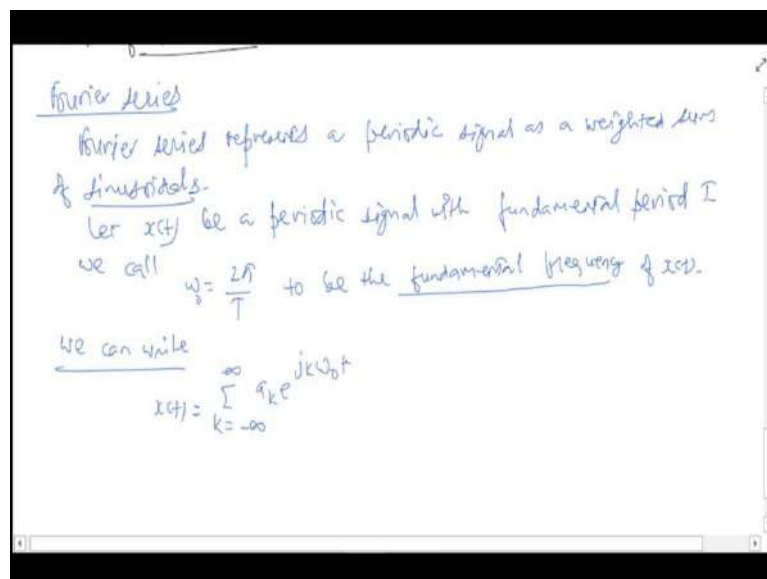 Fourier series
Fourier series represents a periodic signal as a weighted sum
of sinusoidals.
Let x(t) be a periodic signal with fundamental period T
we call ω₀ = 2π/T to be the fundamental frequency of x(t).
we can write
x(t) = ∑_{k=-∞}^{∞} a_k e^{jkω₀t}